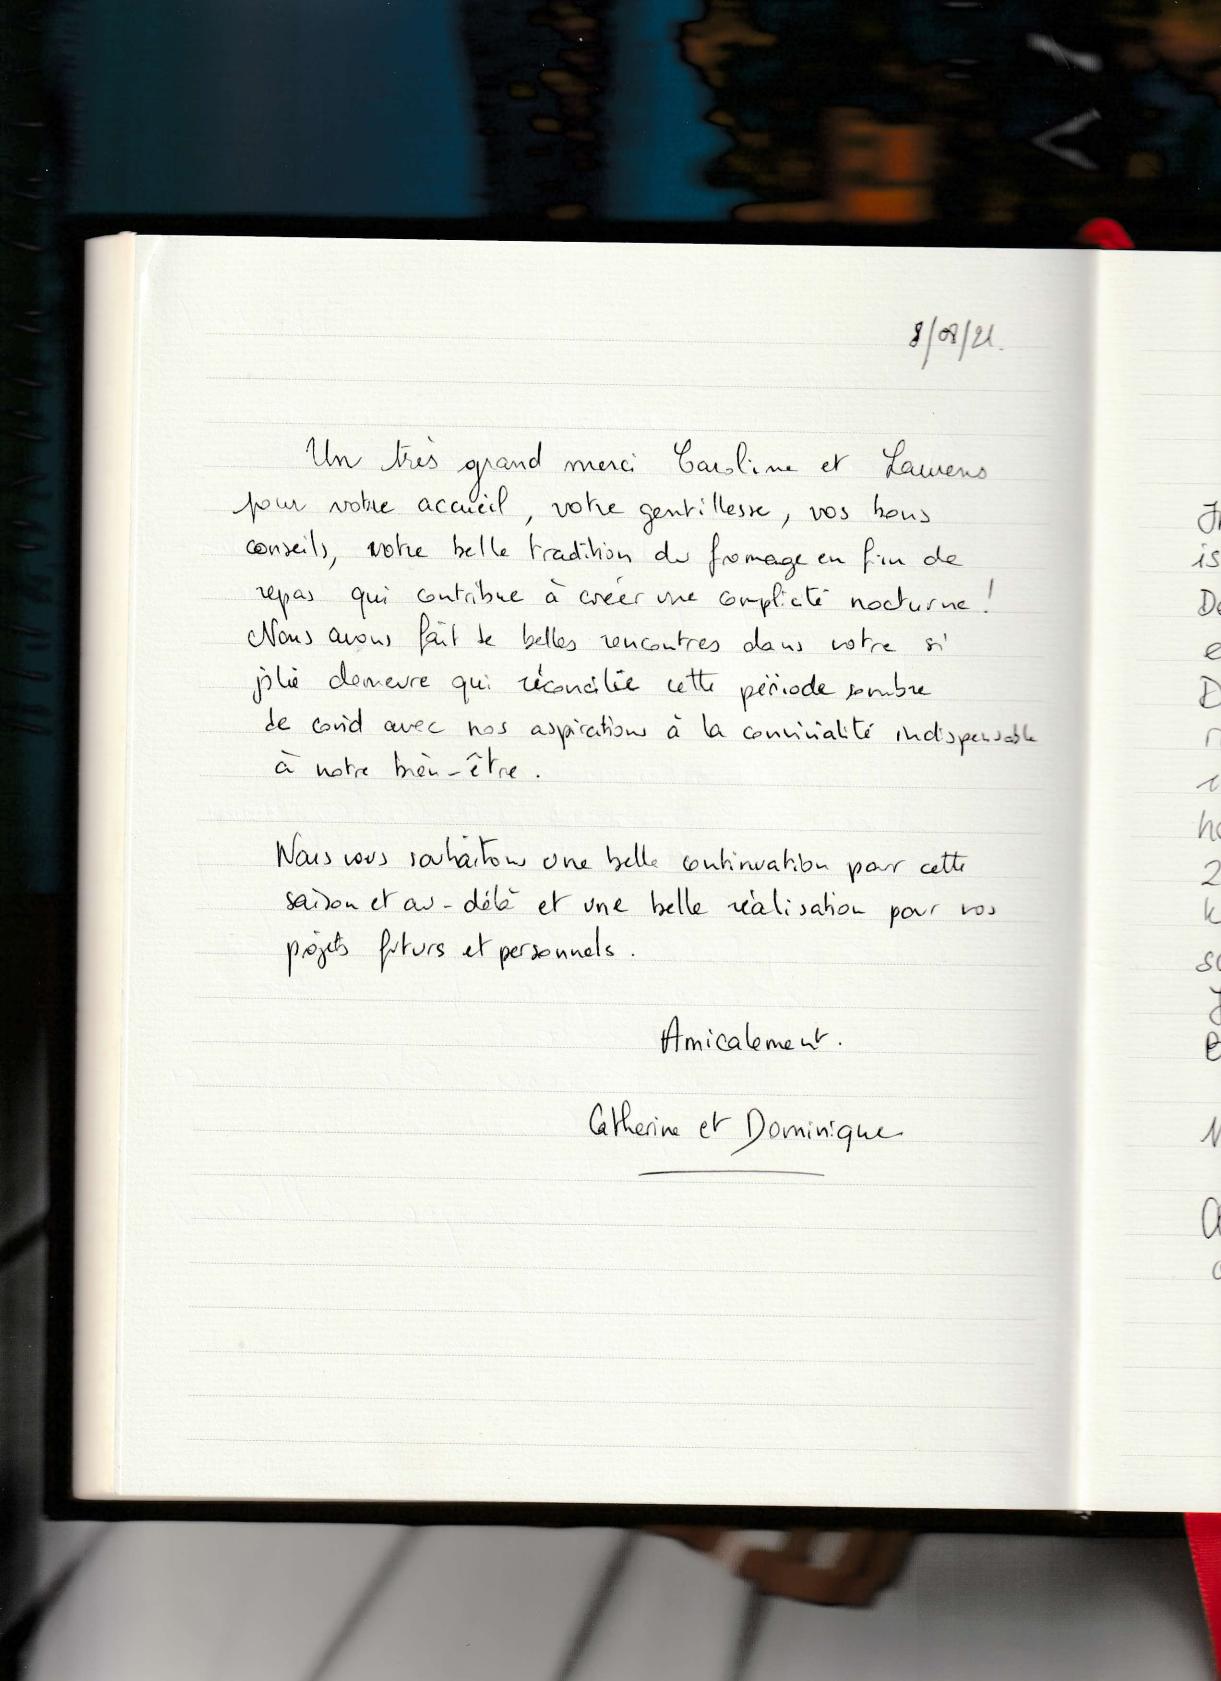 8/08/21.
Un très grand merci Caroline et Laurens
pour votre accueil, votre gentillesse, vos bons
conseils, votre belle tradition du fromage en fin de
repas qui contribue à créer une complicté nocturne !
Nous avons fait de belles rencontres dans votre si
jolie demeure qui réconcilie cette période sombre
de covid avec nos aspirations à la convivialité indispensable
à notre bien-être.
Nous vous souhaitons une belle continuation pour cette
saison et au-délà et une belle réalisation pour vos
projets futurs et personnels.
Amicalement.
Catherine et Dominique